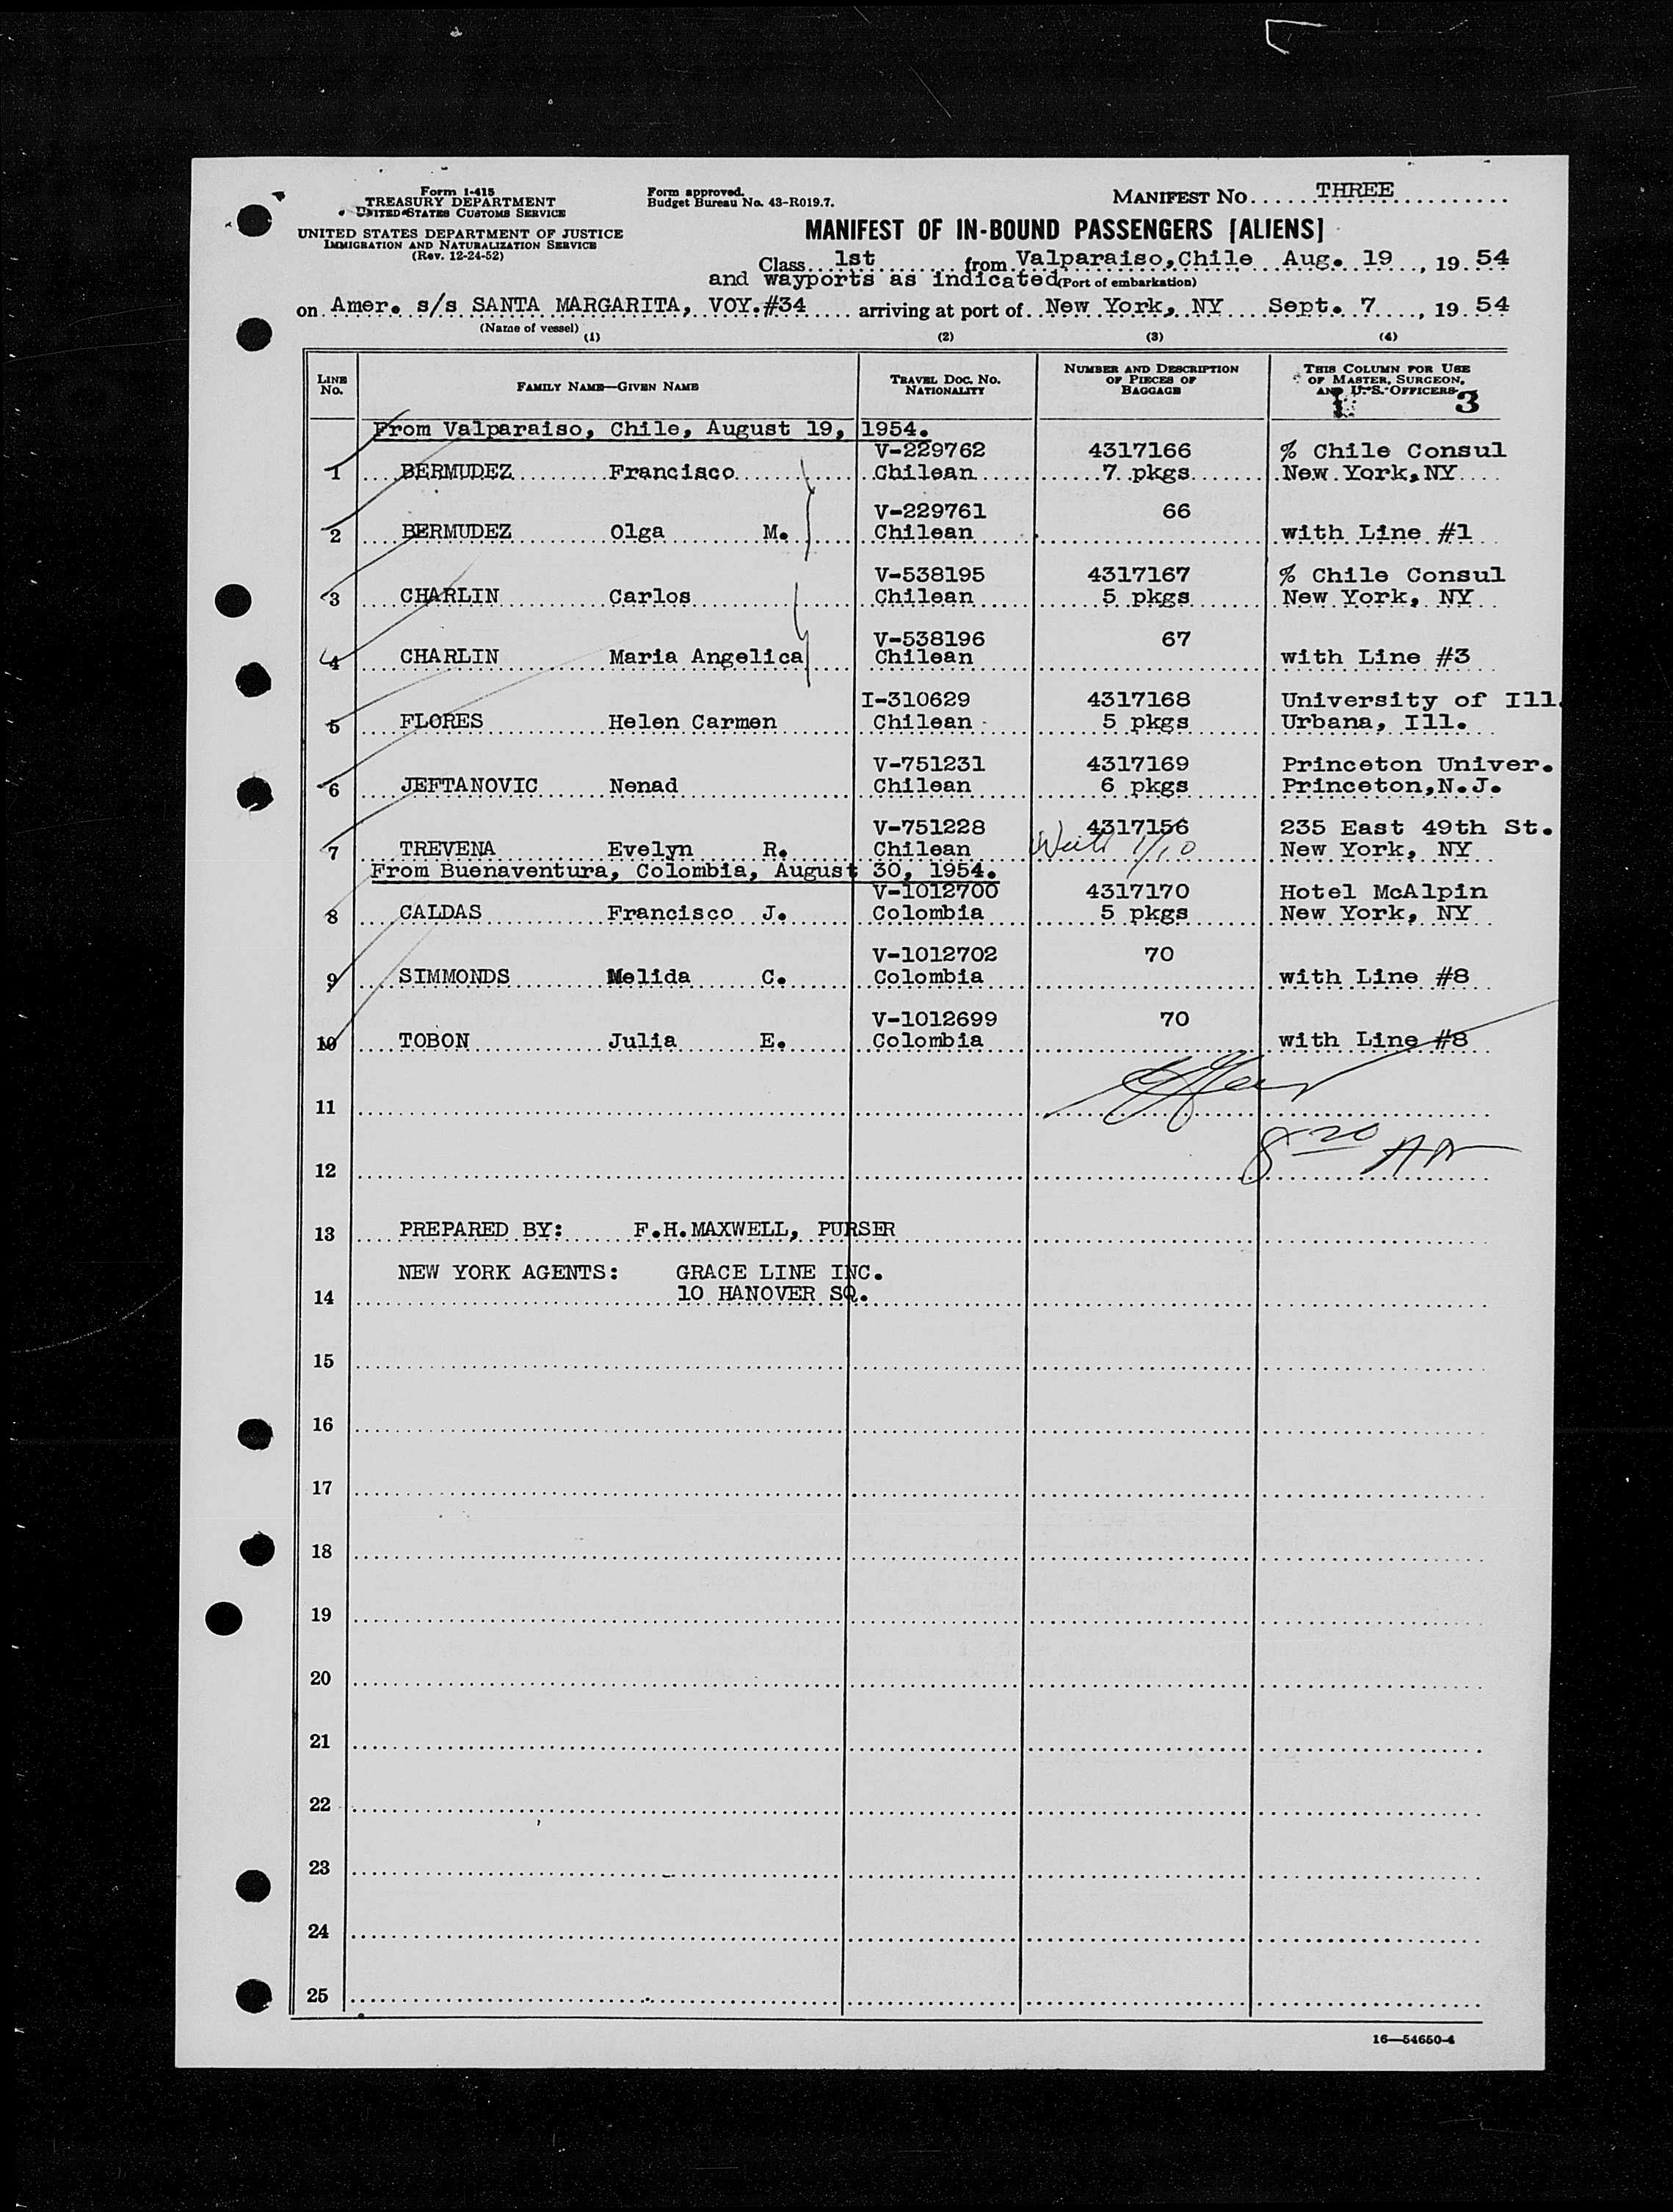 Form I-415
TREASURY DEPARTMENT
UNITED STATES CUSTOMS SERVICE
UNITED STATES DEPARTMENT OF JUSTICE
IMMIGRATION AND NATURALIZATION SERVICE
(Rev. 12-24-52)
Form approved.
Budget Bureau No. 43-R019.7.
MANIFEST NO. THREE
MANIFEST OF IN-BOUND PASSENGERS [ALIENS]
Class 1st from Valparaiso, Chile Aug. 19, 1954
and wayports as indicated (Port of embarkation)
on Amer. s/s SANTA MARGARITA, VOY.#34 arriving at port of New York, NY Sept. 7, 1954
(Name of vessel)
(1) (2) (3) (4)
LINE NO. FAMILY NAME—GIVEN NAME TRAVEL DOC. NO. NATIONALITY NUMBER AND DESCRIPTION OF PIECES OF BAGGAGE THIS COLUMN FOR USE OF MASTER, SURGEON, AND U. S. OFFICERS
3
From Valparaiso, Chile, August 19, 1954.
V-229762 4317166 % Chile Consul
1 BERMUDEZ Francisco Chilean 7 pkgs New York, NY
V-229761 66
2 BERMUDEZ Olga M. Chilean with Line #1
V-538195 4317167 % Chile Consul
3 CHARLIN Carlos Chilean 5 pkgs New York, NY
V-538196 67
4 CHARLIN Maria Angelica Chilean with Line #3
I-310629 4317168 University of Ill.
5 FLORES Helen Carmen Chilean 5 pkgs Urbana, Ill.
V-751231 4317169 Princeton Univer.
6 JEFTANOVIC Nenad Chilean 6 pkgs Princeton, N.J.
V-751228 4317156 235 East 49th St.
7 TREVENA Evelyn R. Chilean 1/10 New York, NY
From Buenaventura, Colombia, August 30, 1954.
V-1012700 4317170 Hotel McAlpin
8 CALDAS Francisco J. Colombia 5 pkgs New York, NY
V-1012702 70
9 SIMMONDS Melida C. Colombia with Line #8
V-1012699 70
10 TOBON Julia E. Colombia with Line #8
11
8 20 AM
12
13 PREPARED BY: F.H.MAXWELL, PURSER
NEW YORK AGENTS: GRACE LINE INC.
14 10 HANOVER SQ.
15
16
17
18
19
20
21
22
23
24
25
16—54650-4